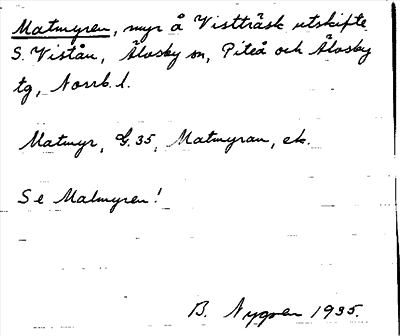 Matmyren, myr å Vistträsk utskifte
S. Viståm, Älvsby sn, Piteå och Älvsby
tg, Norrb. l.
Matmyr, G. 35, Matmyran, ek.
Se Malmyren!
B. Nygren 1935.